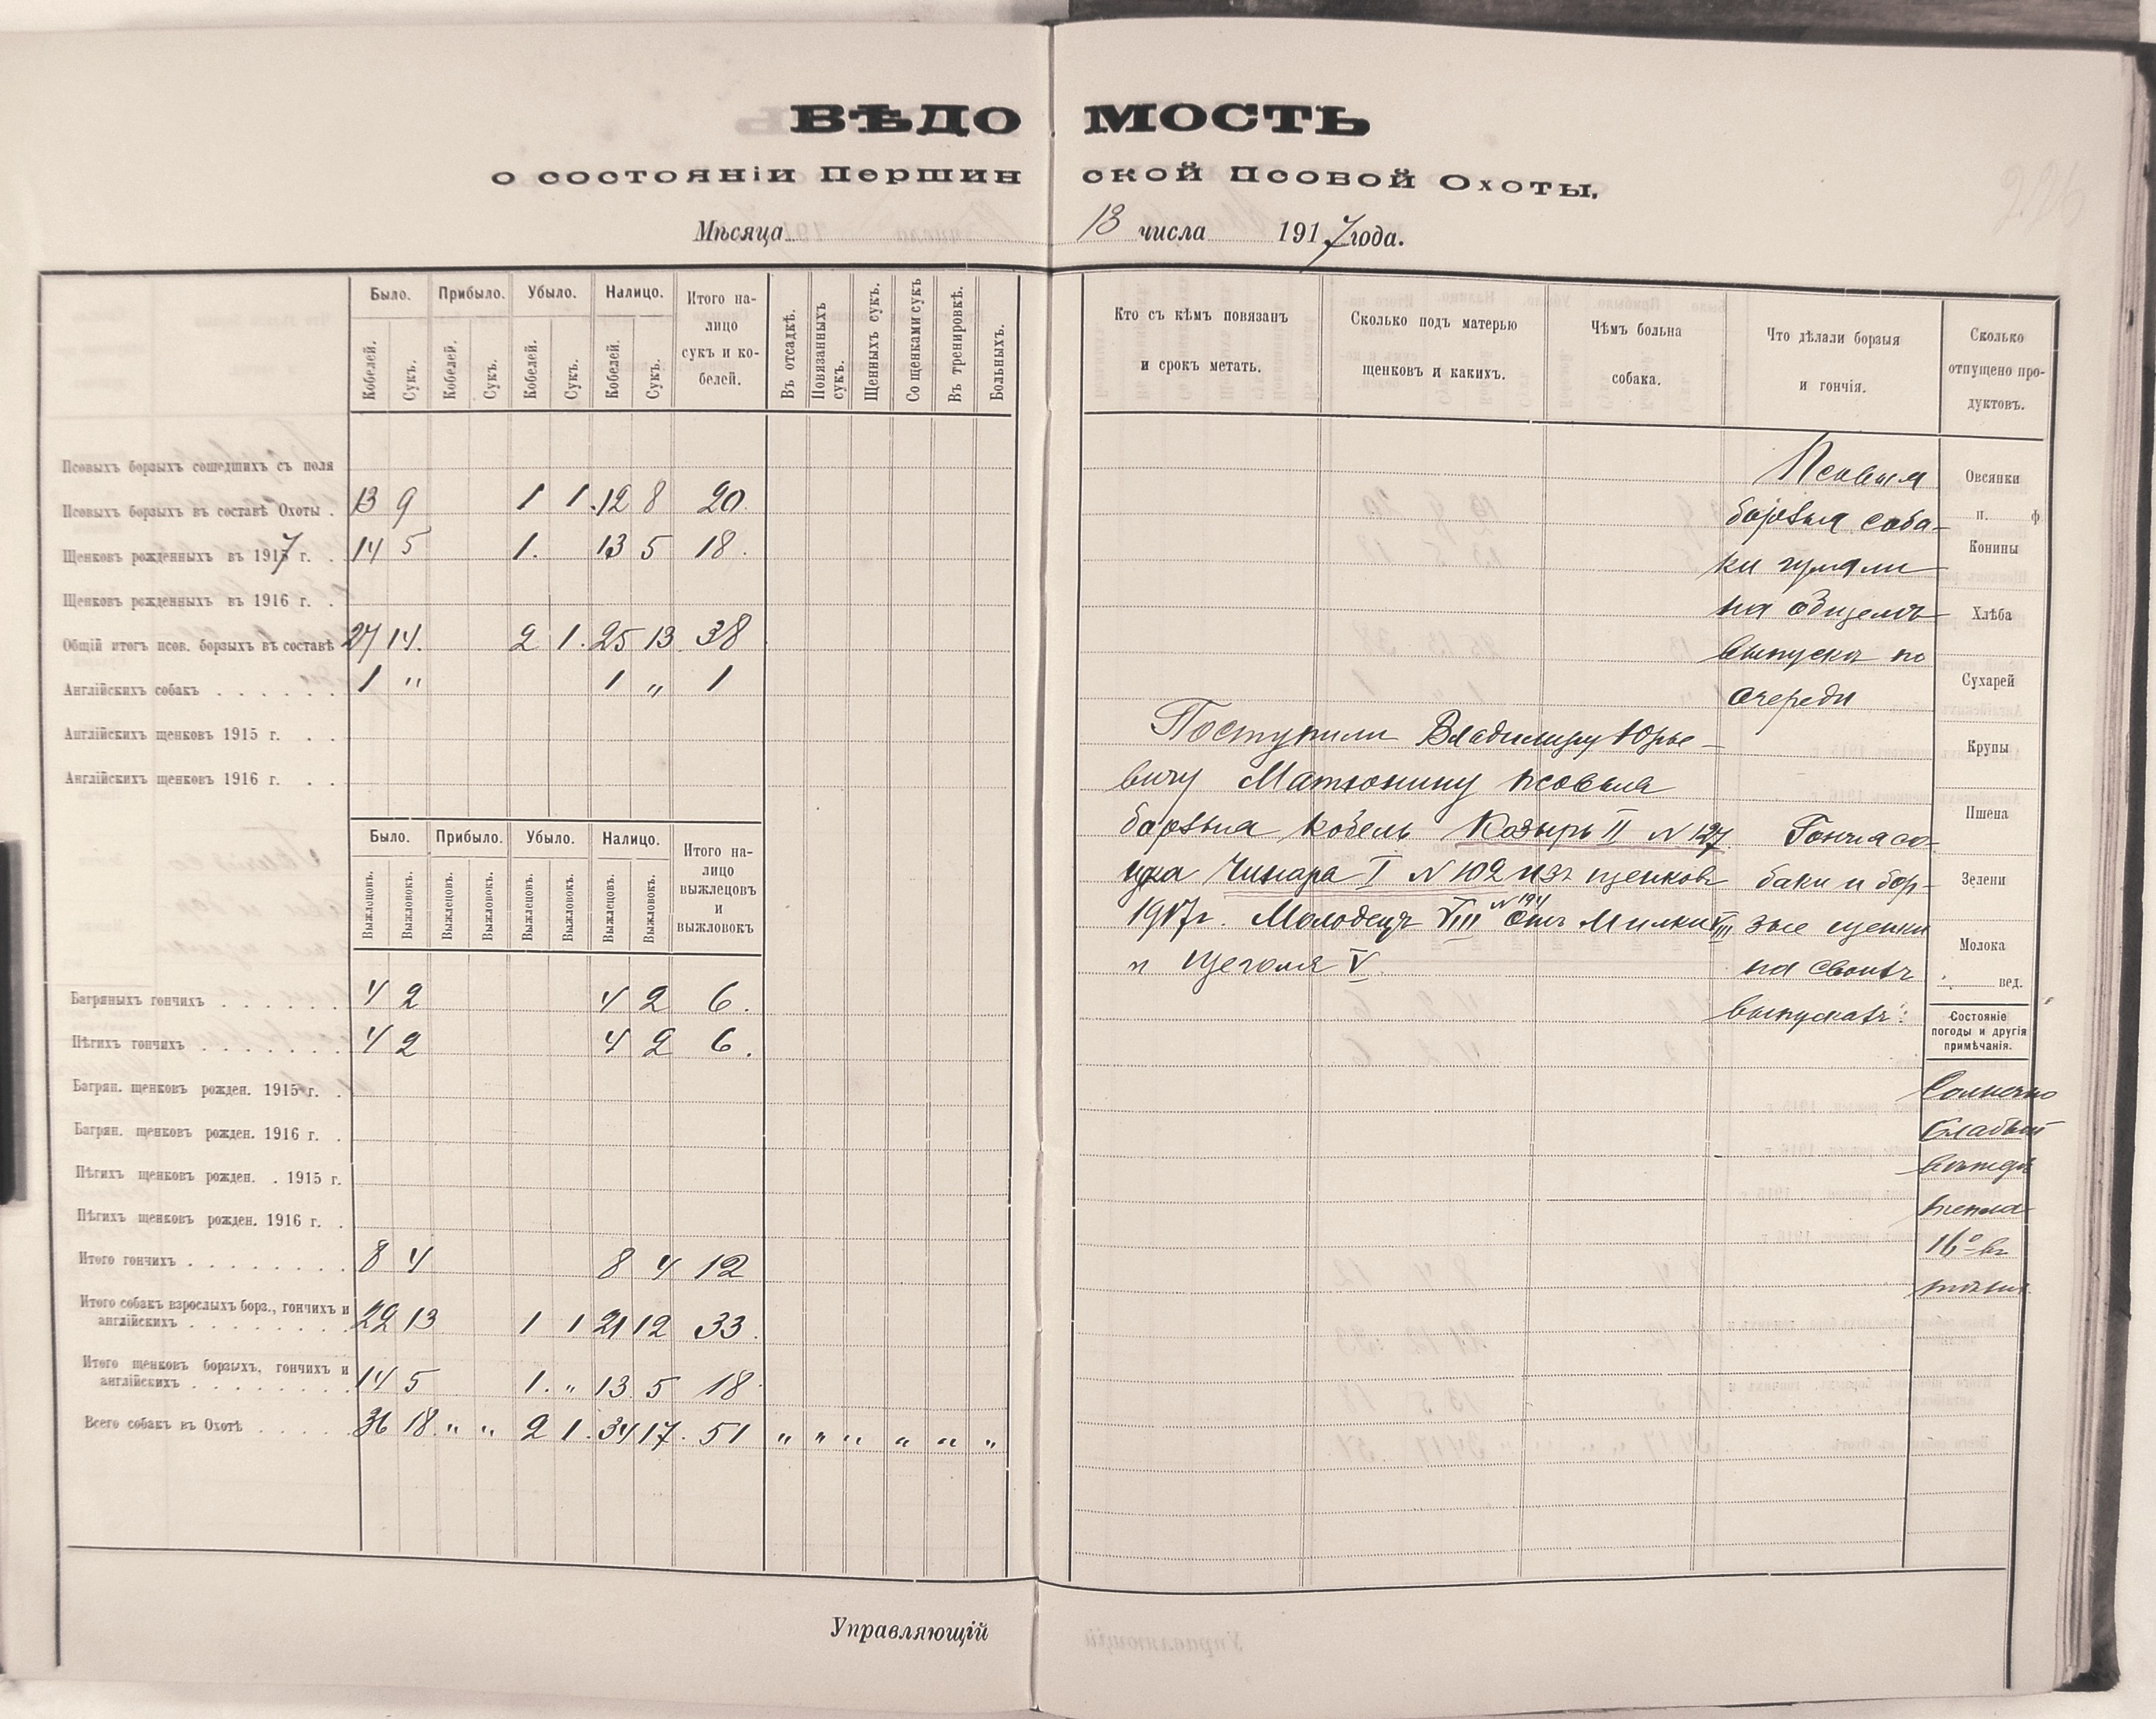 ВѢДОМОСТЬ
о состоянiи Першинской Псовой Охоты.
Мѣсяца 13 числа 1917 года.
Было. Прибыло. Убыло. Налицо. Итого на-
лицо
сукъ и ко-
белей.
Кобелей. Сукъ. Кобелей. Сукъ. Кобелей. Сукъ. Кобелей. Сукъ.
Въ отсадкѣ.
Повязанныхъ сукъ.
Щенныхъ сукъ.
Со щенками сукъ
Въ тренировкѣ.
Больныхъ.
Псовыхъ борзыхъ сошедшихъ съ поля
Псовыхъ борзыхъ въ составѣ Охоты . 13 9 1 1 12 8 20.
Щенковъ рожденныхъ въ 1917 г. . 14 5 1. 13 5 18.
Щенковъ рожденныхъ въ 1916 г. .
Общiй итогъ псов. борзыхъ въ составѣ 27 14. 2 1. 25 13 38
Англiйскихъ собакъ . . . . . . 1 " 1 " 1
Англiйскихъ щенковъ 1915 г. . .
Англiйскихъ щенковъ 1916 г. . .
Было. Прибыло. Убыло. Налицо. Итого на-
лицо
выжлецовъ
и
выжловокъ
Выжлецовъ. Выжловокъ. Выжлецовъ. Выжловокъ. Выжлецовъ. Выжловокъ. Выжлецовъ. Выжловокъ.
Багряныхъ гончихъ . . . . . . 4 2 4 2 6.
Пѣгихъ гончихъ . . . . . . . 4 2 4 2 6.
Багрян. щенковъ рожден. 1915 г. .
Багрян. щенковъ рожден. 1916 г. .
Пѣгихъ щенковъ рожден. . 1915 г.
Пѣгихъ щенковъ рожден. 1916 г. .
Итого гончихъ . . . . . . . . 8 4 8 4 12
Итого собакъ взрослыхъ борз., гончихъ и
англiйскихъ . . . . . . . . 22 13 1 1 21 12 33.
Итого щенковъ борзыхъ, гончихъ и
англiйскихъ . . . . . . . . 14 5 1. " 13 5 18
Всего собакъ въ Охотѣ . . . . . 36 18 " " 2 1. 34 17. 51 " " " " " "
Управляющiй
Кто съ кѣмъ повязанъ
и срокъ метать.
Сколько подъ матерью
щенковъ и какихъ.
Чѣмъ больна
собака.
Что дѣлали борзыя
и гончiя.
Сколько
отпущено про-
дуктовъ.
Псовыя
борзыя соба-
ки гуляли
на общемъ
выпускѣ по
очереди
Поступили Владимиру Юрье-
вичу Матюнину псовыя
борзыя кобель Козырь II N 127
сука Чинара I N 102 изъ щенковъ
1917г. Молодецъ VIII N 194 отъ Милки VIII
и Щеголя V.
Гончiя со-
баки и бор-
зые щенки
на своихъ
выпускахъ.
Овсянки
п. ф.
Конины
Хлѣба
Сухарей
Крупы
Пшена
Зелени
Молока
вед.
Состоянiе
погоды и другiя
примѣчанiя.
Солнечно
Слабый
тепла
16° въ
тѣни.